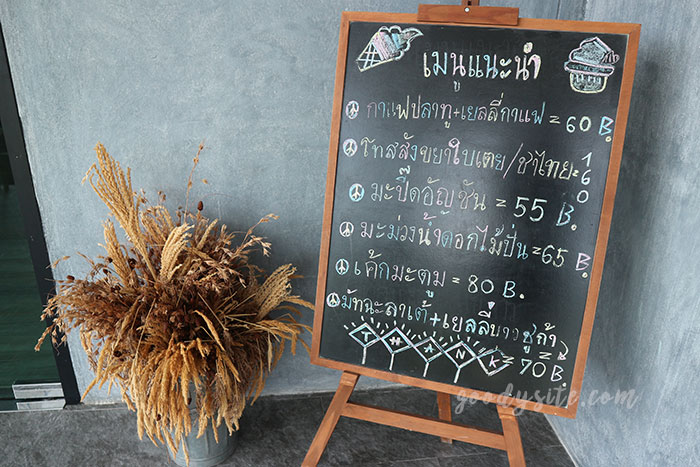 เมนูแนะนำ
กาแฟปลาทู+เยลลี่กาแฟ = 60 B.
โทสสังขยาใบเตย/ชาไทย = 160
มะปี๊ดอัญชัน = 55 B.
มะม่วงน้ำดอกไม้ปั่น = 65 B.
เค้กมะตูม = 80 B.
มัทฉะลาเต้+เยลลี่บราวชูก้า
= 70 B.
THANK
goodysite.com